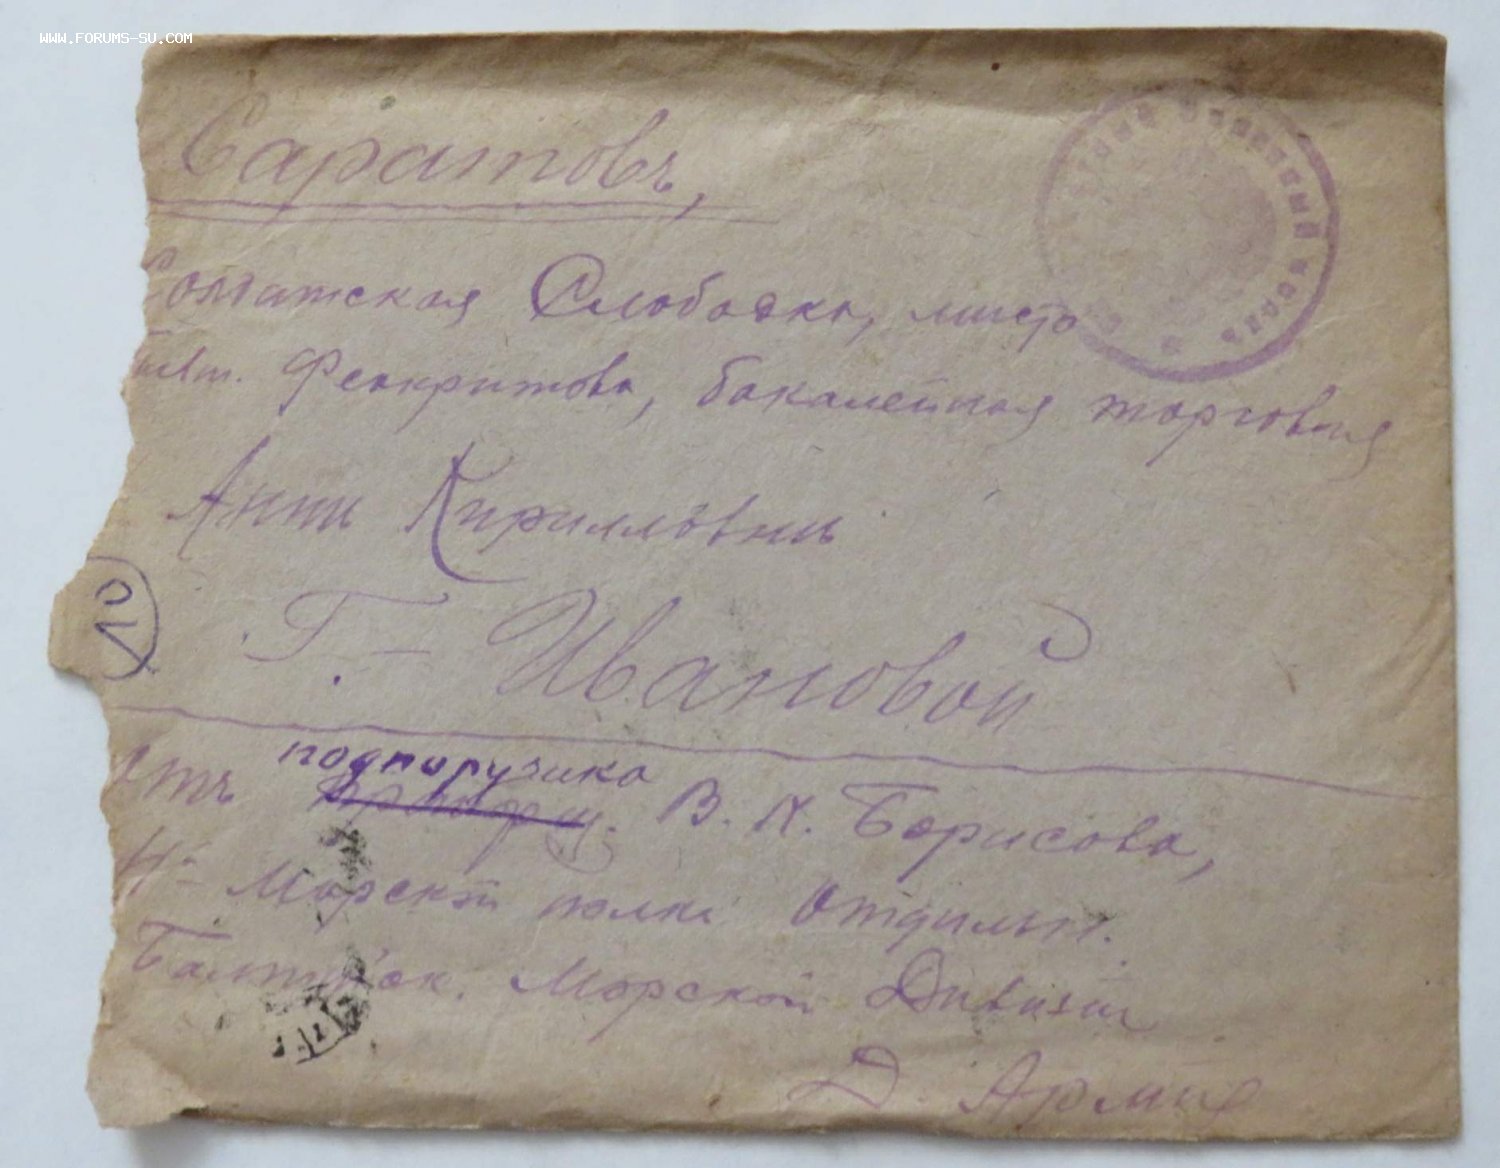 WWW.FORUMS-SU.COM
Саратовъ,
Солдатская Слободка, мѣсто
Феокритова, бакалейная торговля
Аннѣ Кирилловнѣ
Г.- Ивановой
10
подпоручика
Отъ прапорщ. В. К. Борисова,
Морской полка Отдѣльн.
Балтійск. Морской Дивизіи
Д. Армія